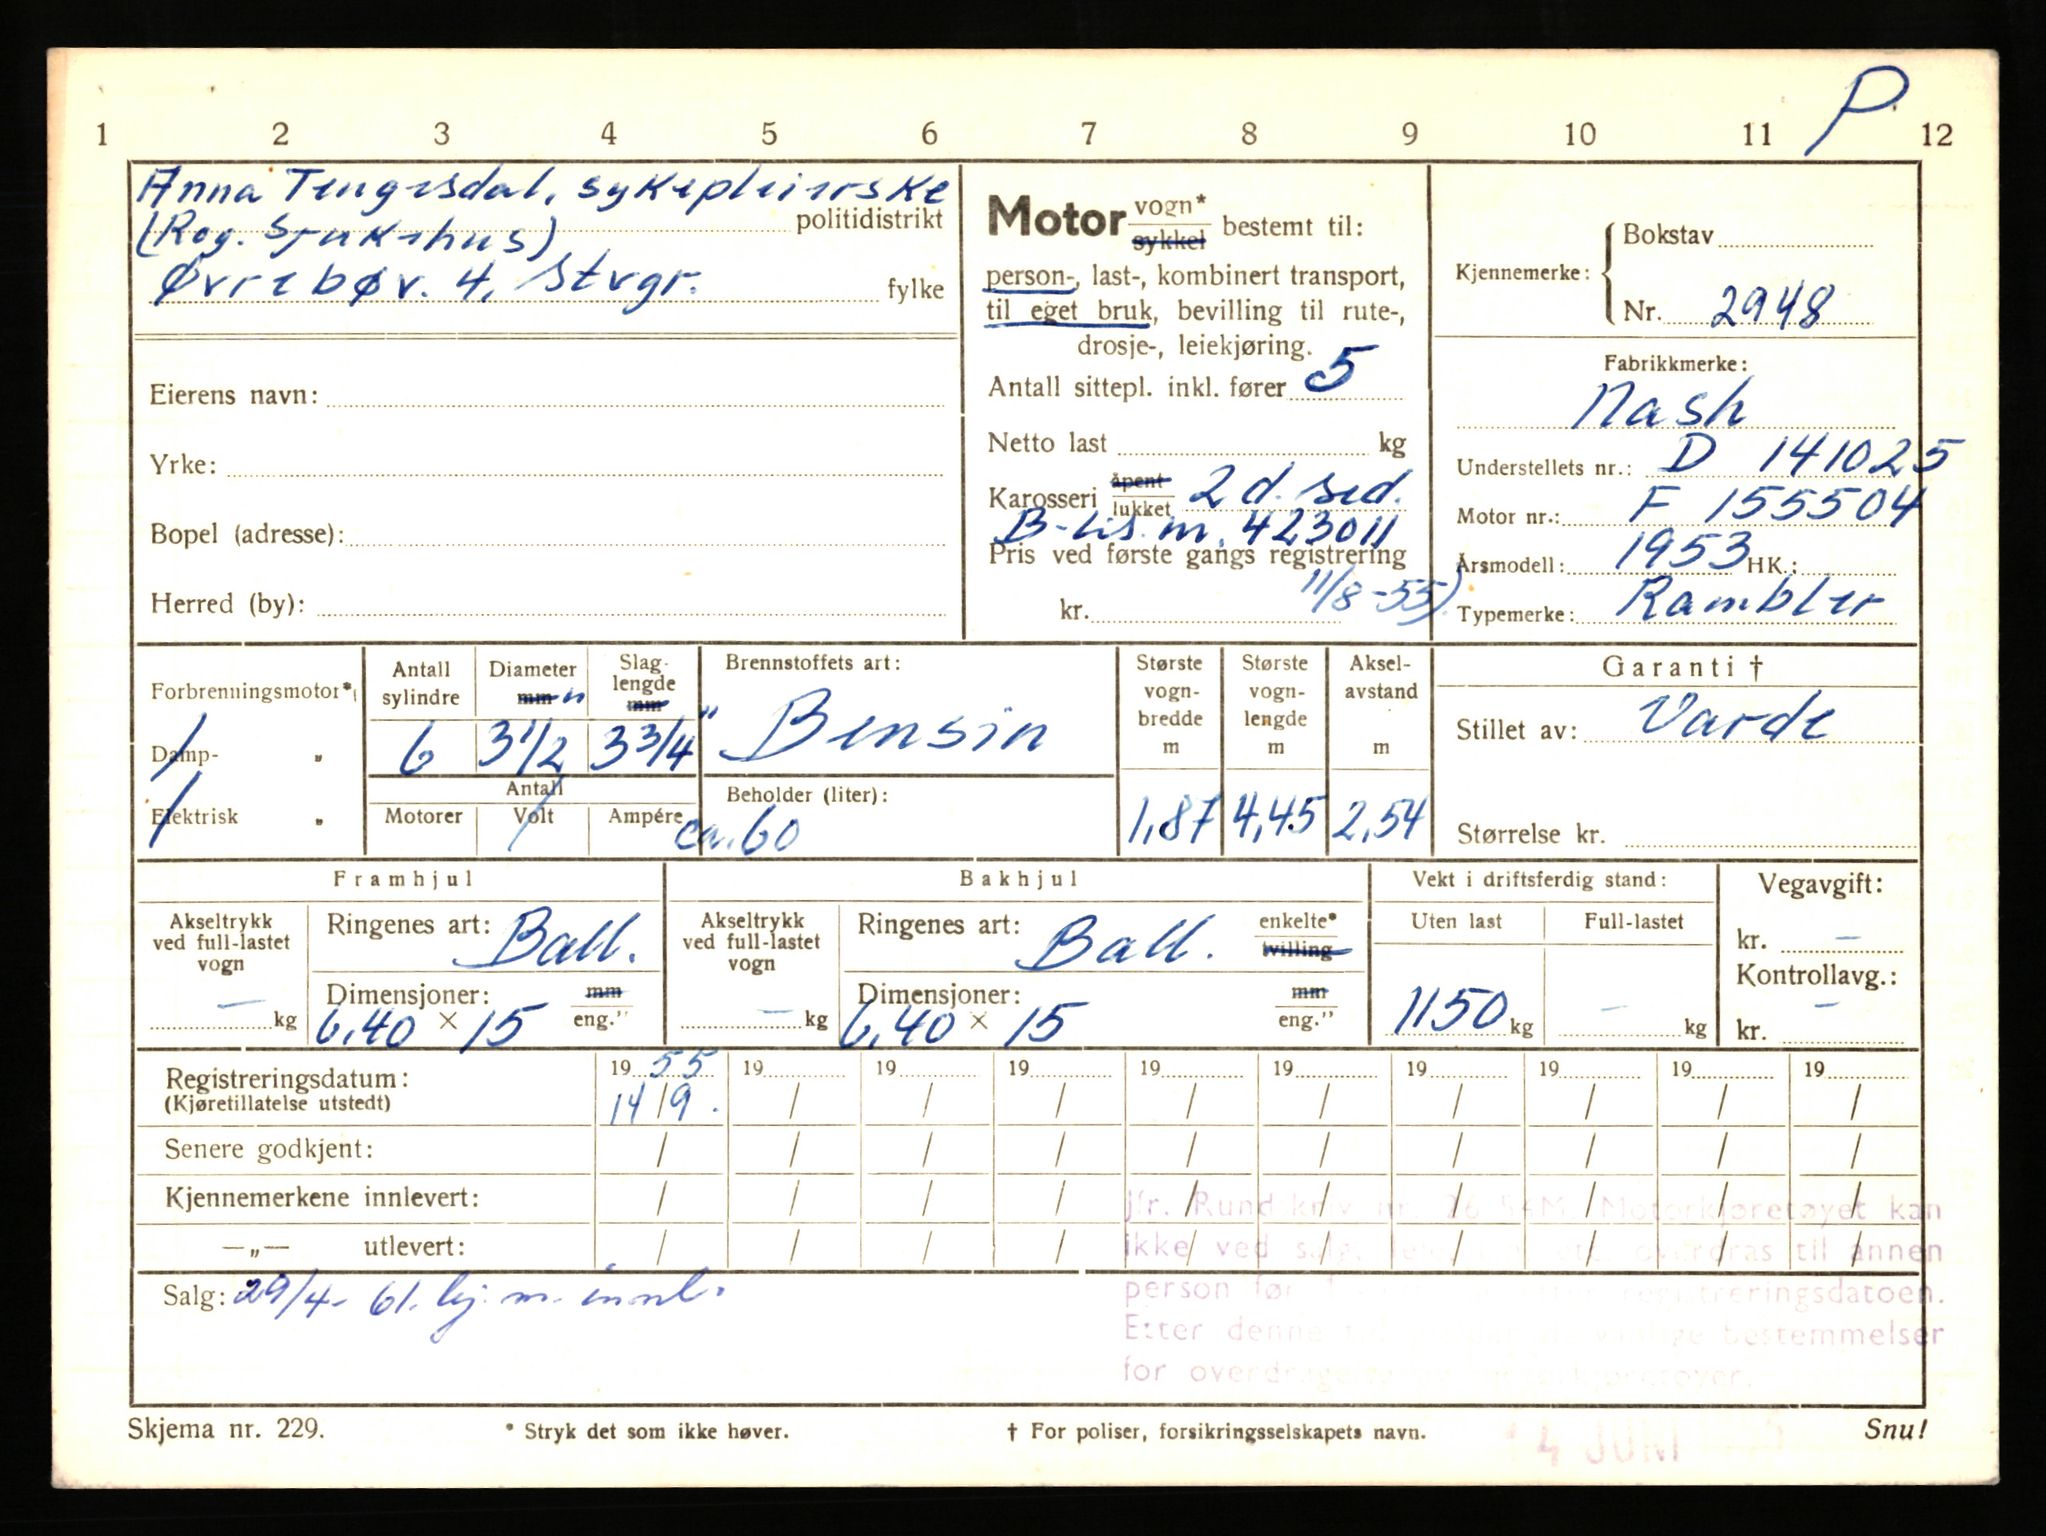 P
1 2 3 4 5 6 7 8 9 10 11 12
Anna Tengesdal, sykepleierske
politidistrikt
(Rog. Sjukehus)
Øvrebøv. 4, Stvgr.
fylke
Eierens navn:
Yrke:
Bopel (adresse):
Herred (by):
Motor vogn* sykkel bestemt til:
person-, last-, kombinert transport,
til eget bruk, bevilling til rute-,
drosje-, leiekjøring.
Antall sittepl. inkl. fører 5
Netto last kg
Karosseri åpent lukket 2 d. sed.
B-lis. m. 423011
Pris ved første gangs registrering
11/8-55)
kr.
Kjennemerke: Bokstav
Nr. 2948
Fabrikkmerke:
Nash
Understellets nr.: D 141025
Motor nr.: F 155504
Årsmodell: 1953 HK.:
Typemerke: Rambler
Forbrenningsmotor*
Damp- „
Elektrisk „
Antall sylindre
6
Diameter mm "
3 1/2
Slaglengde mm
3 3/4"
Antall
Motorer Volt Ampére
Brennstoffets art:
Bensin
Beholder (liter):
ca. 60
Største vognbredde m
1,87
Største vognlengde m
4,45
Akselavstand m
2,54
Garanti †
Stillet av: Varde
Størrelse kr.
Framhjul
Akseltrykk ved full-lastet vogn
– kg
Ringenes art: Ball.
Dimensjoner: mm eng."
6,40 × 15
Bakhjul
Akseltrykk ved full-lastet vogn
– kg
Ringenes art: Ball. enkelte* tvilling
Dimensjoner: mm eng."
6,40 × 15
Vekt i driftsferdig stand:
Uten last Full-lastet
1150 kg – kg
Vegavgift:
kr. –
Kontrollavg.:
kr. –
Registreringsdatum: 19 55 19 19 19 19 19 19 19 19 19
(Kjøretillatelse utstedt) 14/9. / / / / / / / / /
Senere godkjent: / / / / / / / / / /
Kjennemerkene innlevert: / / / / / / / / / /
—„— utlevert: / / / / / / / / / /
jfr. Rundskriv nr. 26 SAM. Motorkjøretøyet kan
ikke ved salg, til annen
person før registreringsdatoen.
Etter denne bestemmelser
for
Salg: 29/4-61. kj. m. innl.
Skjema nr. 229.
* Stryk det som ikke høver.
† For poliser, forsikringsselskapets navn.
14 JUNI
Snu!